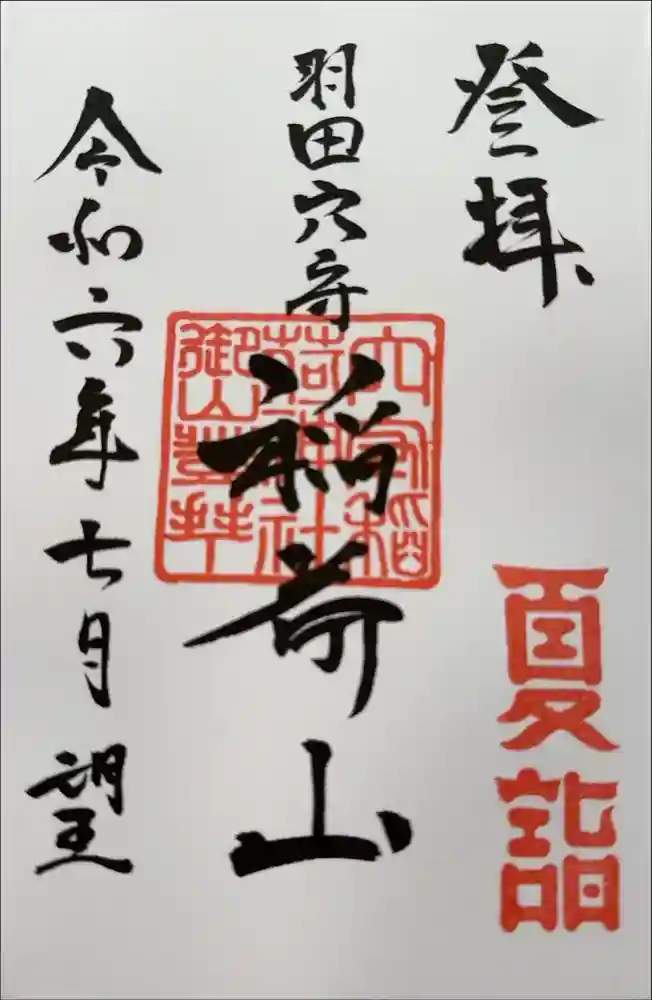 登拝
夏詣
羽田穴守
稲荷山
穴守稲
荷神社
御山登拝
令和六年七月望